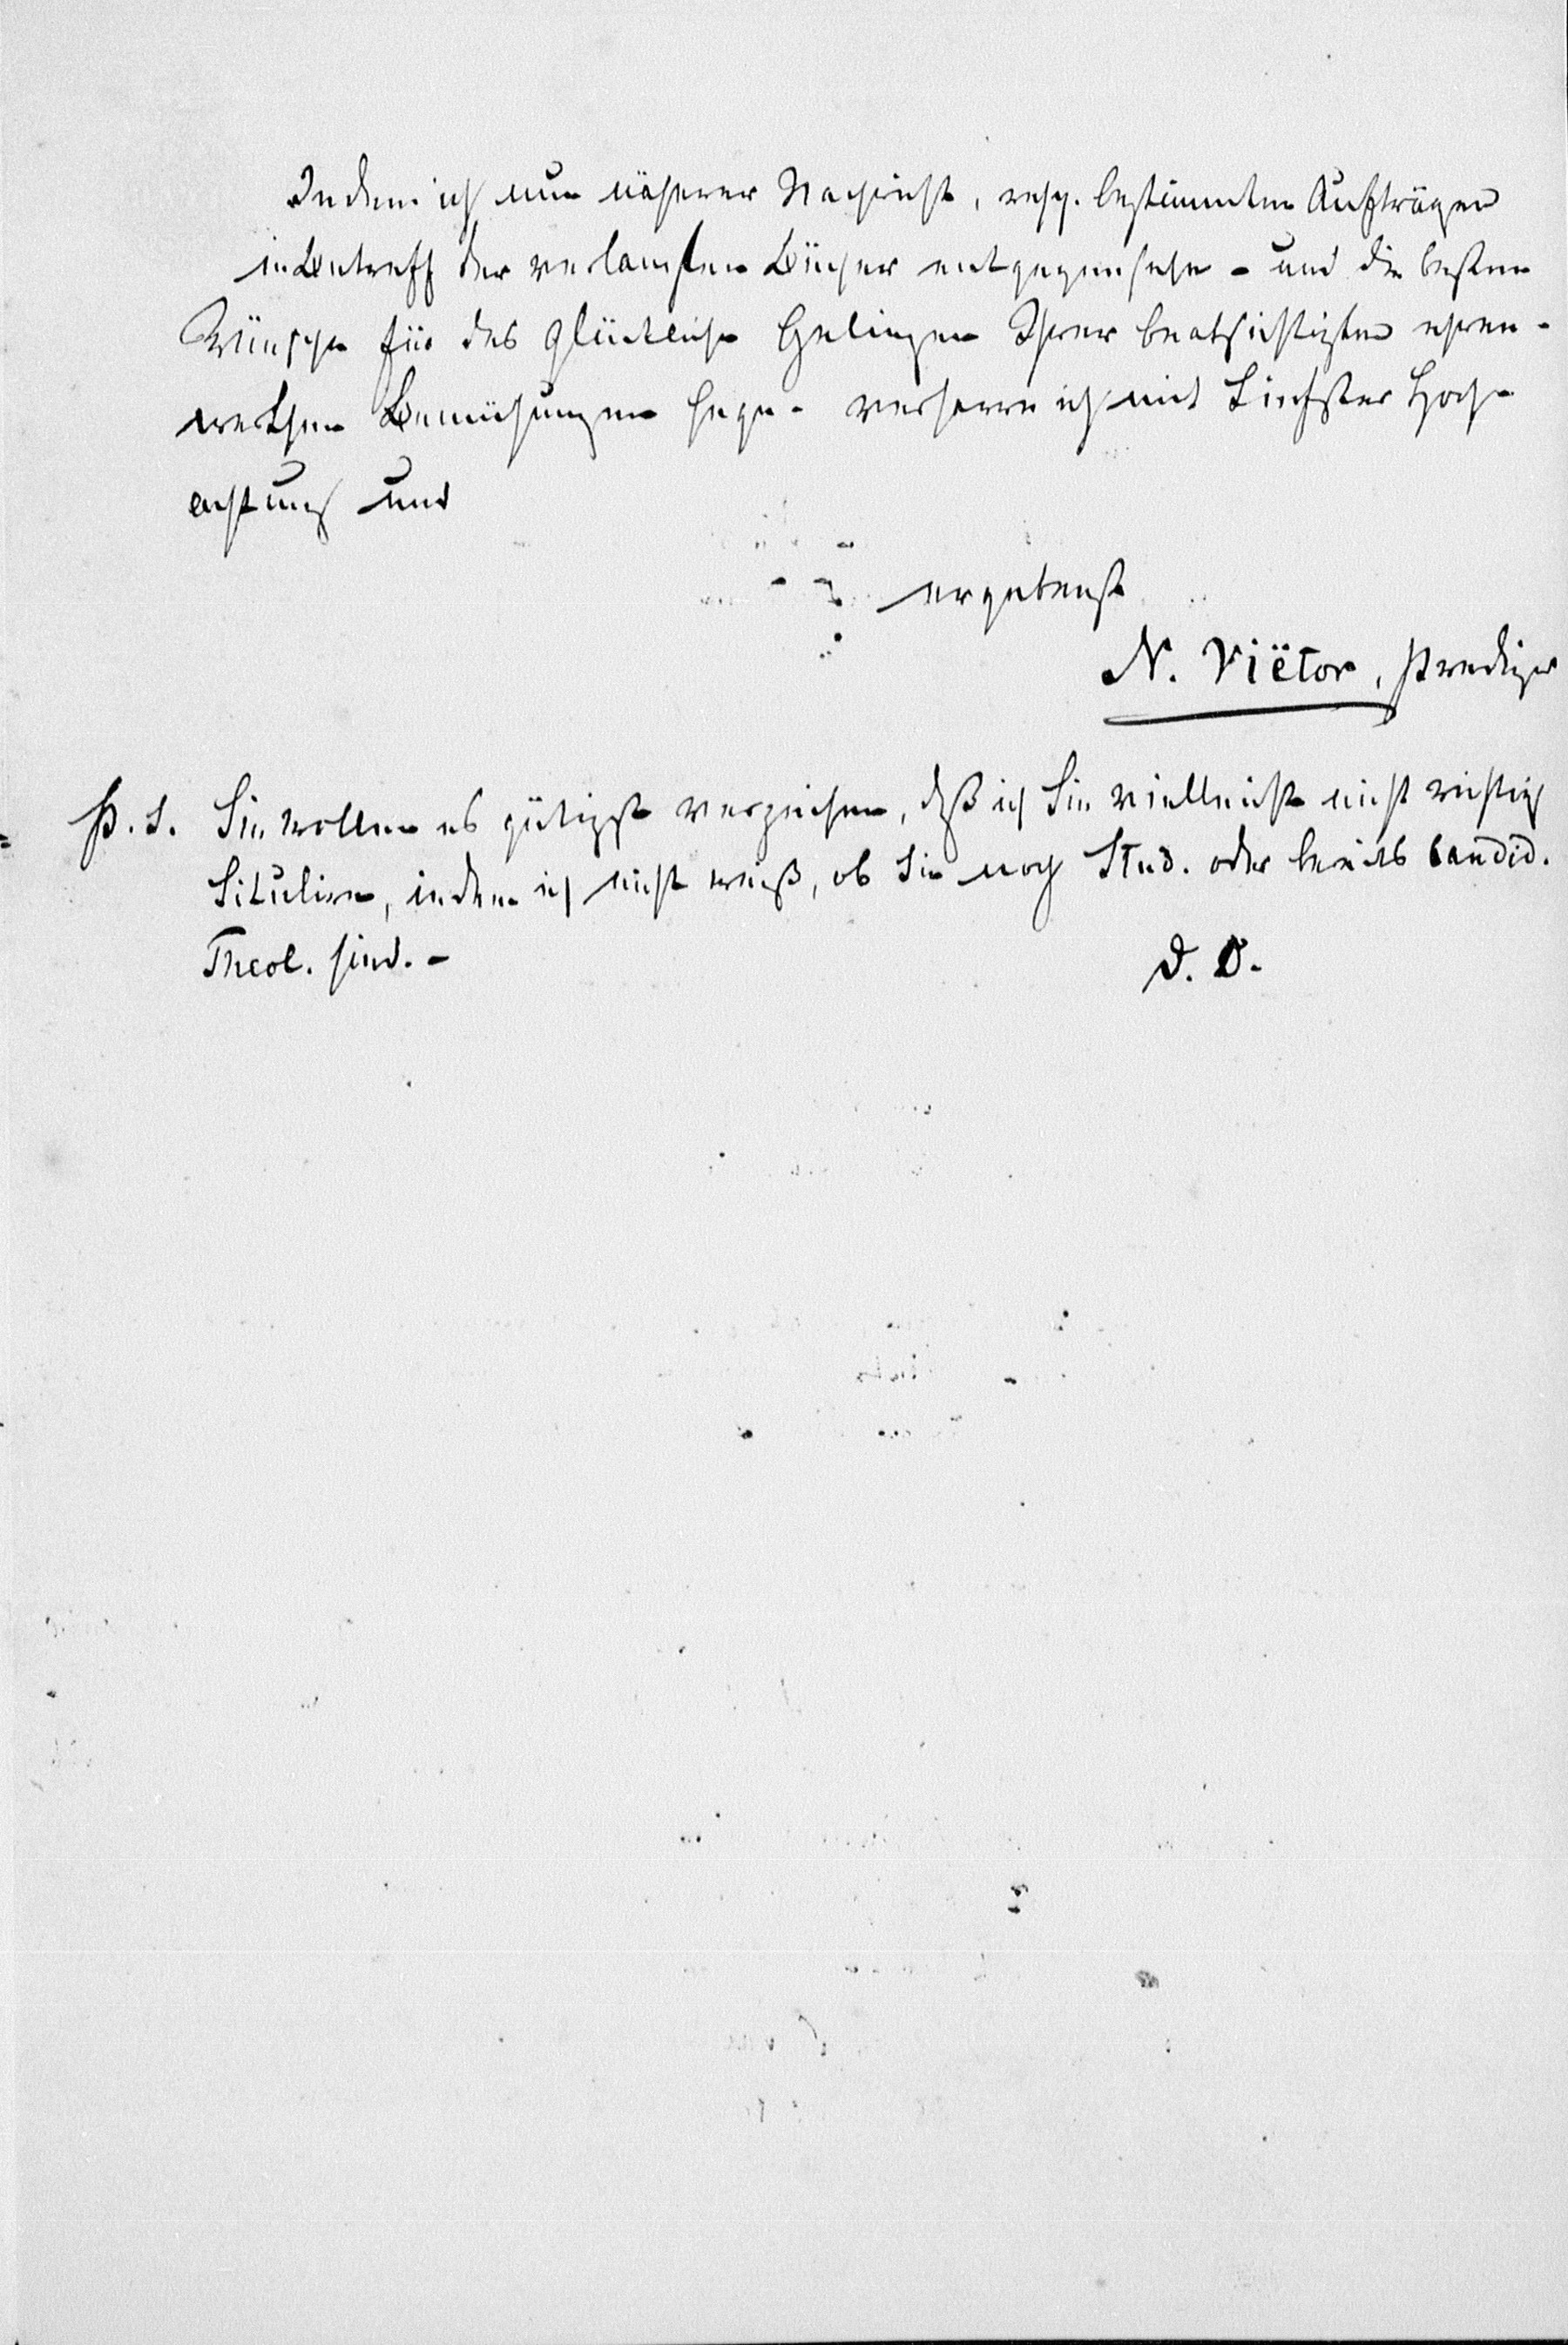 Indem ich nun näherer Nachricht, resp. bestimmten Aufträgen
in Betreff der verlangten Bücher entgegensehe - und die besten
Wünsche für das glückliche Gelingen Ihrer beabsichtigten ehren-
werthen Bemühungen hege - verharre ich mit tiefster Hoch-
achtung und
ergebenst
N. Viëtor, Prediger
P. S. Sie wollen es gütigst verzeihen, daß ich Sie vielleicht nicht richtig
titulire, indem ich nicht weiß, ob Sie noch Stud. oder bereits Candid.
Theol. sind. -
D. O.